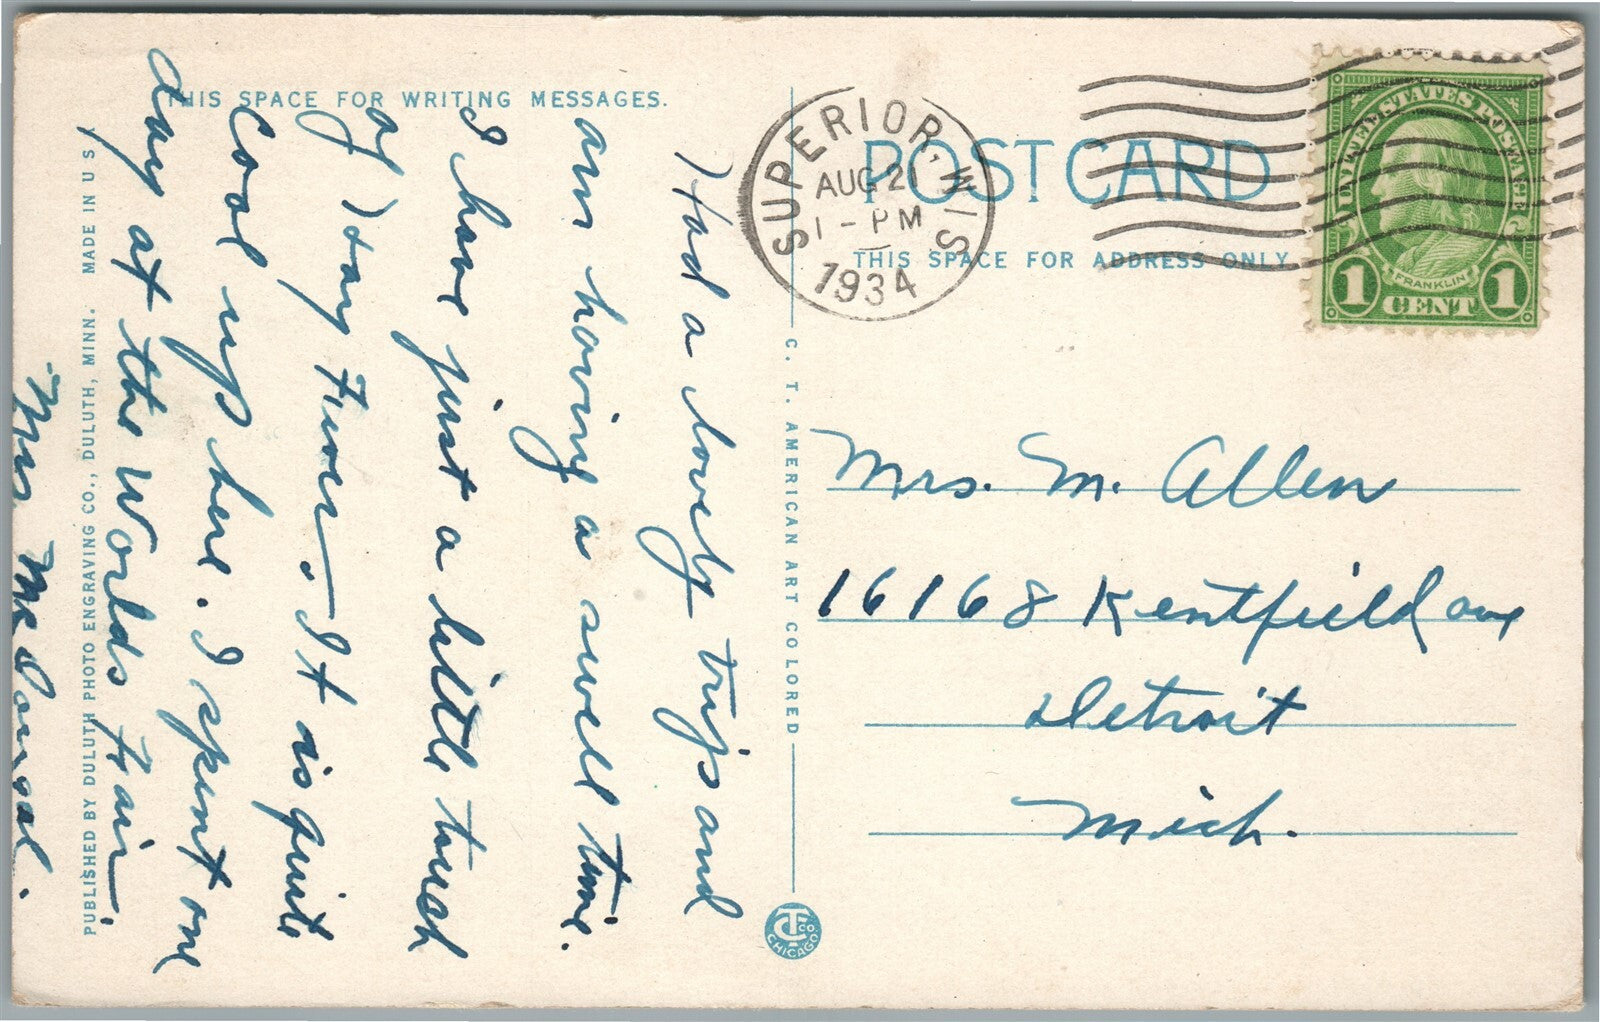 THIS SPACE FOR WRITING MESSAGES.
Had a lovely trip and
am having a swell time.
I have just a little touch
of Hay Fever. It is quite
Cool up here. I spent one
day at the Worlds Fair.
Mrs. McDougal.
PUBLISHED BY DULUTH PHOTO ENGRAVING CO., DULUTH, MINN. MADE IN U S
C. T. AMERICAN ART COLORED
C T CO. CHICAGO
SUPERIOR, WIS.
AUG 21
1 - PM
1934
POST CARD
THIS SPACE FOR ADDRESS ONLY
UNITED STATES POSTAGE
FRANKLIN
1 CENT 1
Mrs. M. Allen
16168 Kentfield ave
Detroit
Mich.